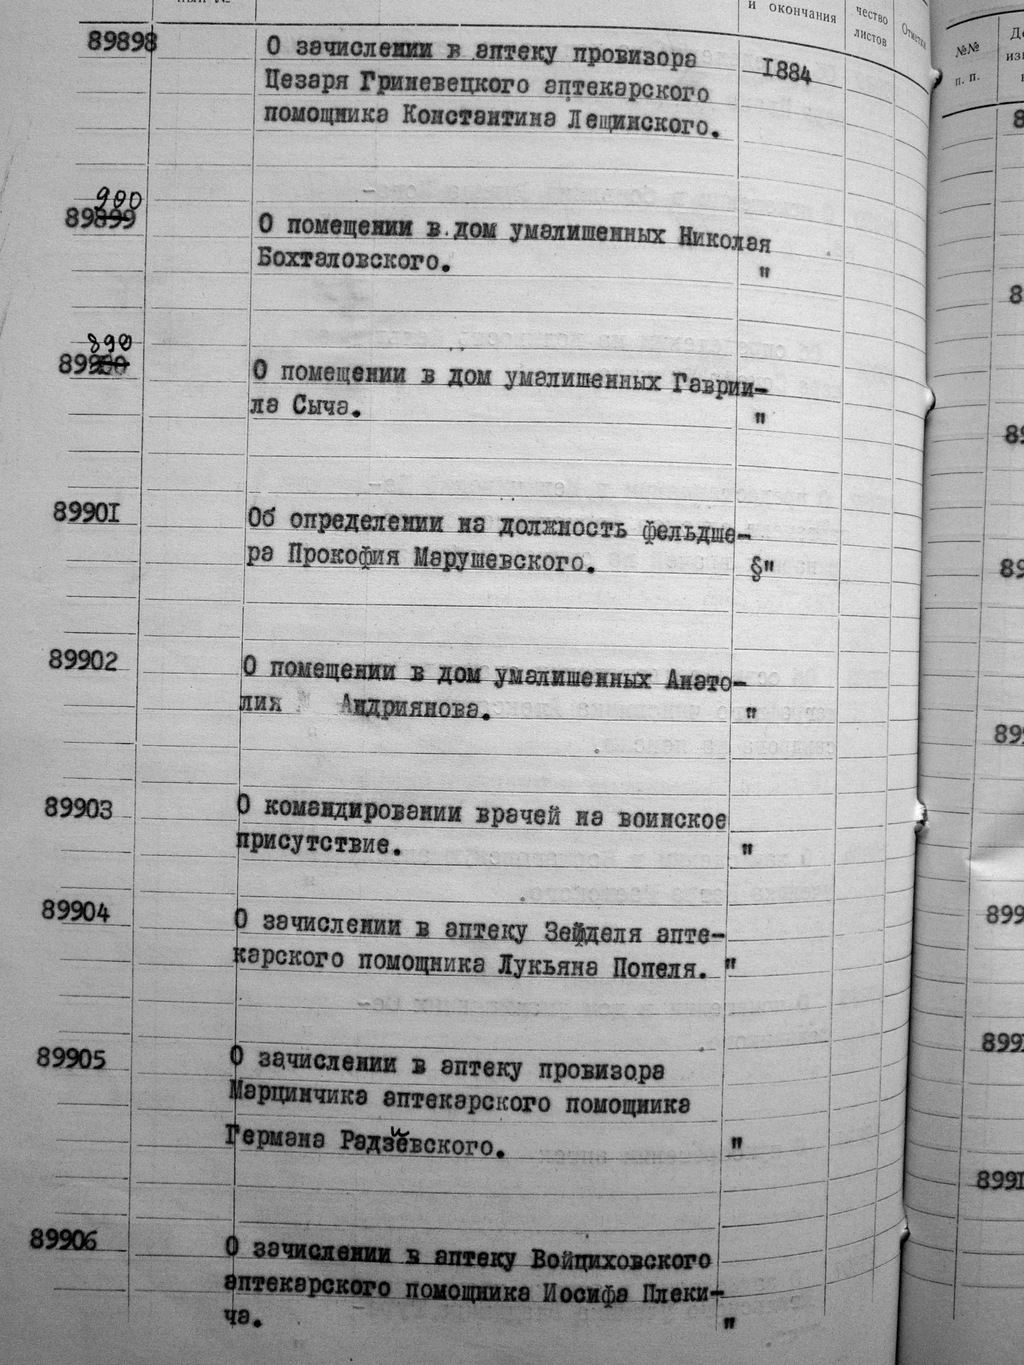 и окончания
чество
листов
Отметки
№№
п. п.
89898
О зачислении в аптеку провизора
Цезаря Гриневецкого аптекарского
помощника Константина Лещинского.
1884
900
89899
О помещении в дом умалишенных Николая
Бохталовского.
"
890
89900
О помещении в дом умалишенных Гаврии-
ла Сыча.
"
89901
Об определении на должность фельдше-
ра Прокофия Марушевского.
§"
89902
О помещении в дом умалишенных Анато-
лия Андриянова.
"
89903
О командировании врачей на воинское
присутствие.
"
89904
О зачислении в аптеку Зейделя апте-
карского помощника Лукьяна Попеля. "
89905
О зачислении в аптеку провизора
Марцинчика аптекарского помощника
Германа Радзевского.
и
"
89906
О зачислении в аптеку Войциховского
аптекарского помощника Иосифа Плеки-
ча.
"